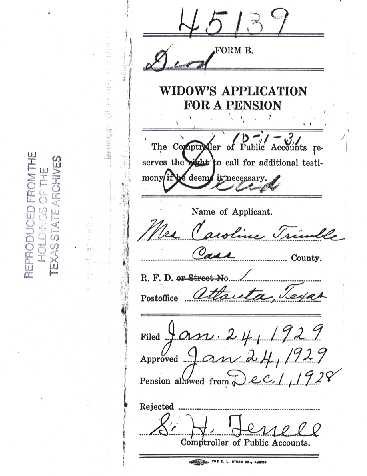 45139
Dead
FORM B.
WIDOW'S APPLICATION
FOR A PENSION
12-1-31
The Comptroller of Public Accounts re-
serves the right to call for additional testi-
mony if he deems it necessary.
Died
Name of Applicant.
Mrs Caroline Trimble
Cass County.
R. F. D. or Street No. 1
Postoffice Atlanta, Texas
Filed Jan. 24, 1929
Approved Jan 24, 1929
Pension allowed from Dec. 1, 1928
Rejected
S. H. Terrell
Comptroller of Public Accounts.
REPRODUCED FROM THE
HOLDINGS OF THE
TEXAS STATE ARCHIVES